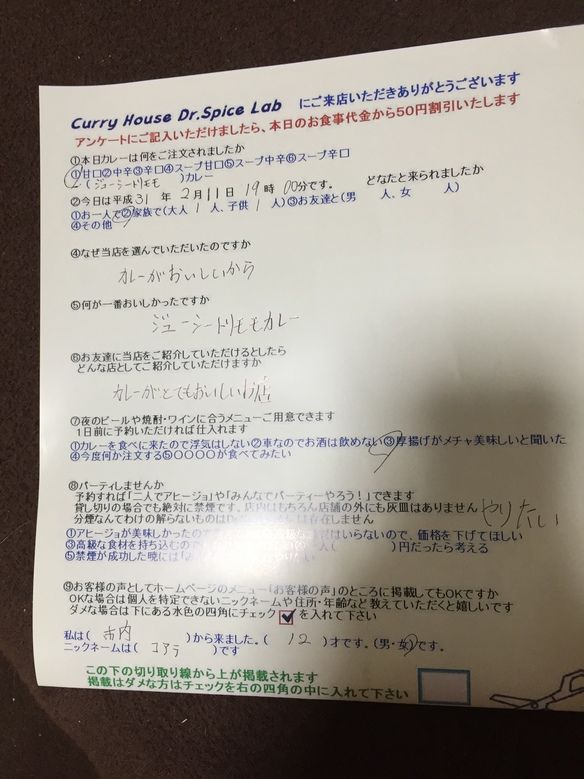 Curry House Dr.Spice Lab にご来店いただきありがとうございます
アンケートにご記入いただけましたら、本日のお食事代金から50円割引いたします
①本日カレーは何をご注文されましたか
①甘口②中辛③辛口④スープ甘口⑤スープ中辛⑥スープ辛口
(ジューシートリモモ )カレー
②今日は平成31 年 2月11日 19時 00分です。 どなたと来られましたか
①お一人で②家族で(大人 1 人、子供 1 人)③お友達と(男 人、女 人)
④その他
④なぜ当店を選んでいただいたのですか
カレーがおいしいから
⑤何が一番おいしかったですか
ジューシートリモモカレー
⑥お友達に当店をご紹介していただけるとしたら
どんな店としてご紹介していただけますか
カレーがとてもおいしいお店
⑦夜のビールや焼酎・ワインに合うメニューご用意できます
1日前に予約いただければ仕入れます
①カレーを食べに来たので浮気はしない②車なのでお酒は飲めない③厚揚げがメチャ美味しいと聞いた
④今度何か注文する⑤〇〇〇〇が食べてみたい
⑧パーティしませんか
予約すれば「二人でアヒージョ」や「みんなでパーティーやろう!」できます
貸し切りの場合でも絶対に禁煙です。店内はもちろん店舗の外にも灰皿はありません やりたい
分煙なんてわけの解らないものはD 存在しません
①アヒージョが美味しかったので はいらないので、価格を下げてほしい
③高級な食材を持ち込むので 人( )円だったら考える
⑤禁煙が成功した暁には「お
⑨お客様の声としてホームページのメニュー「お客様の声」のところに掲載してもOKですか
OKな場合は個人を特定できないニックネームや住所・年齢など教えていただくと嬉しいです
ダメな場合は下にある水色の四角にチェック を入れて下さい
私は( 市内 )から来ました。( 12 )才です。(男・女)です。
ニックネームは( コアラ )です
この下の切り取り線から上が掲載されます
掲載はダメな方はチェックを右の四角の中に入れて下さい